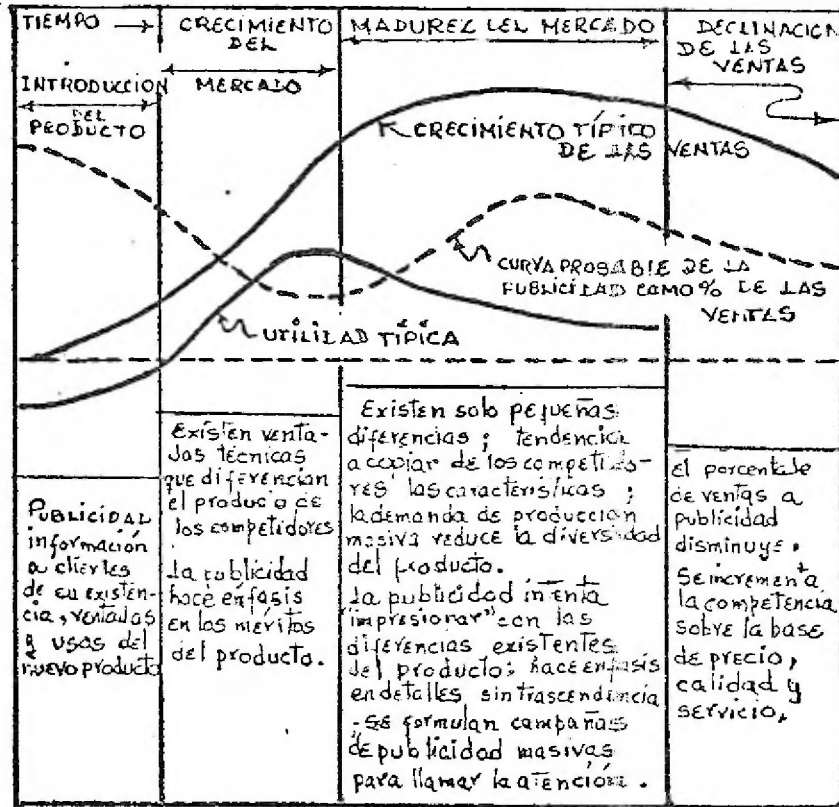 TIEMPO
INTRODUCCION
DEL
PRODUCTO
CRECIMIENTO
DEL
MERCADO
MADUREZ LEL MERCADO
DECLINACION
DE LAS
VENTAS
CRECIMIENTO TÍPICO
DE LAS VENTAS
CURVA PROBABLE DE LA
PUBLICIDAD COMO % DE LAS
VENTAS
UTILIDAD TÍPICA
PUBLICIDAD
información
a clientes
de su existen-
cia, ventajas
y usos del
nuevo producto
Existen venta-
jas técnicas
que diferencian
el produc o de
los competidores
La publicidad
hace enfasis
en los méritos
del producto.
Existen solo pequeñas
diferencias; tendencia
a copiar de los competido-
res las características;
la demanda de producción
masiva reduce la diversidad
del producto.
La publicidad intenta
"impresionar" con las
diferencias existentes
del producto; hace enfasis
en detalles sin trascendencia
- se formulan campañas
de publicidad masivas
para llamar la atención.
el porcentaje
de ventas a
publicidad
disminuye.
Se incrementa
la competencia
sobre la base
de precio,
calidad y
servicio.